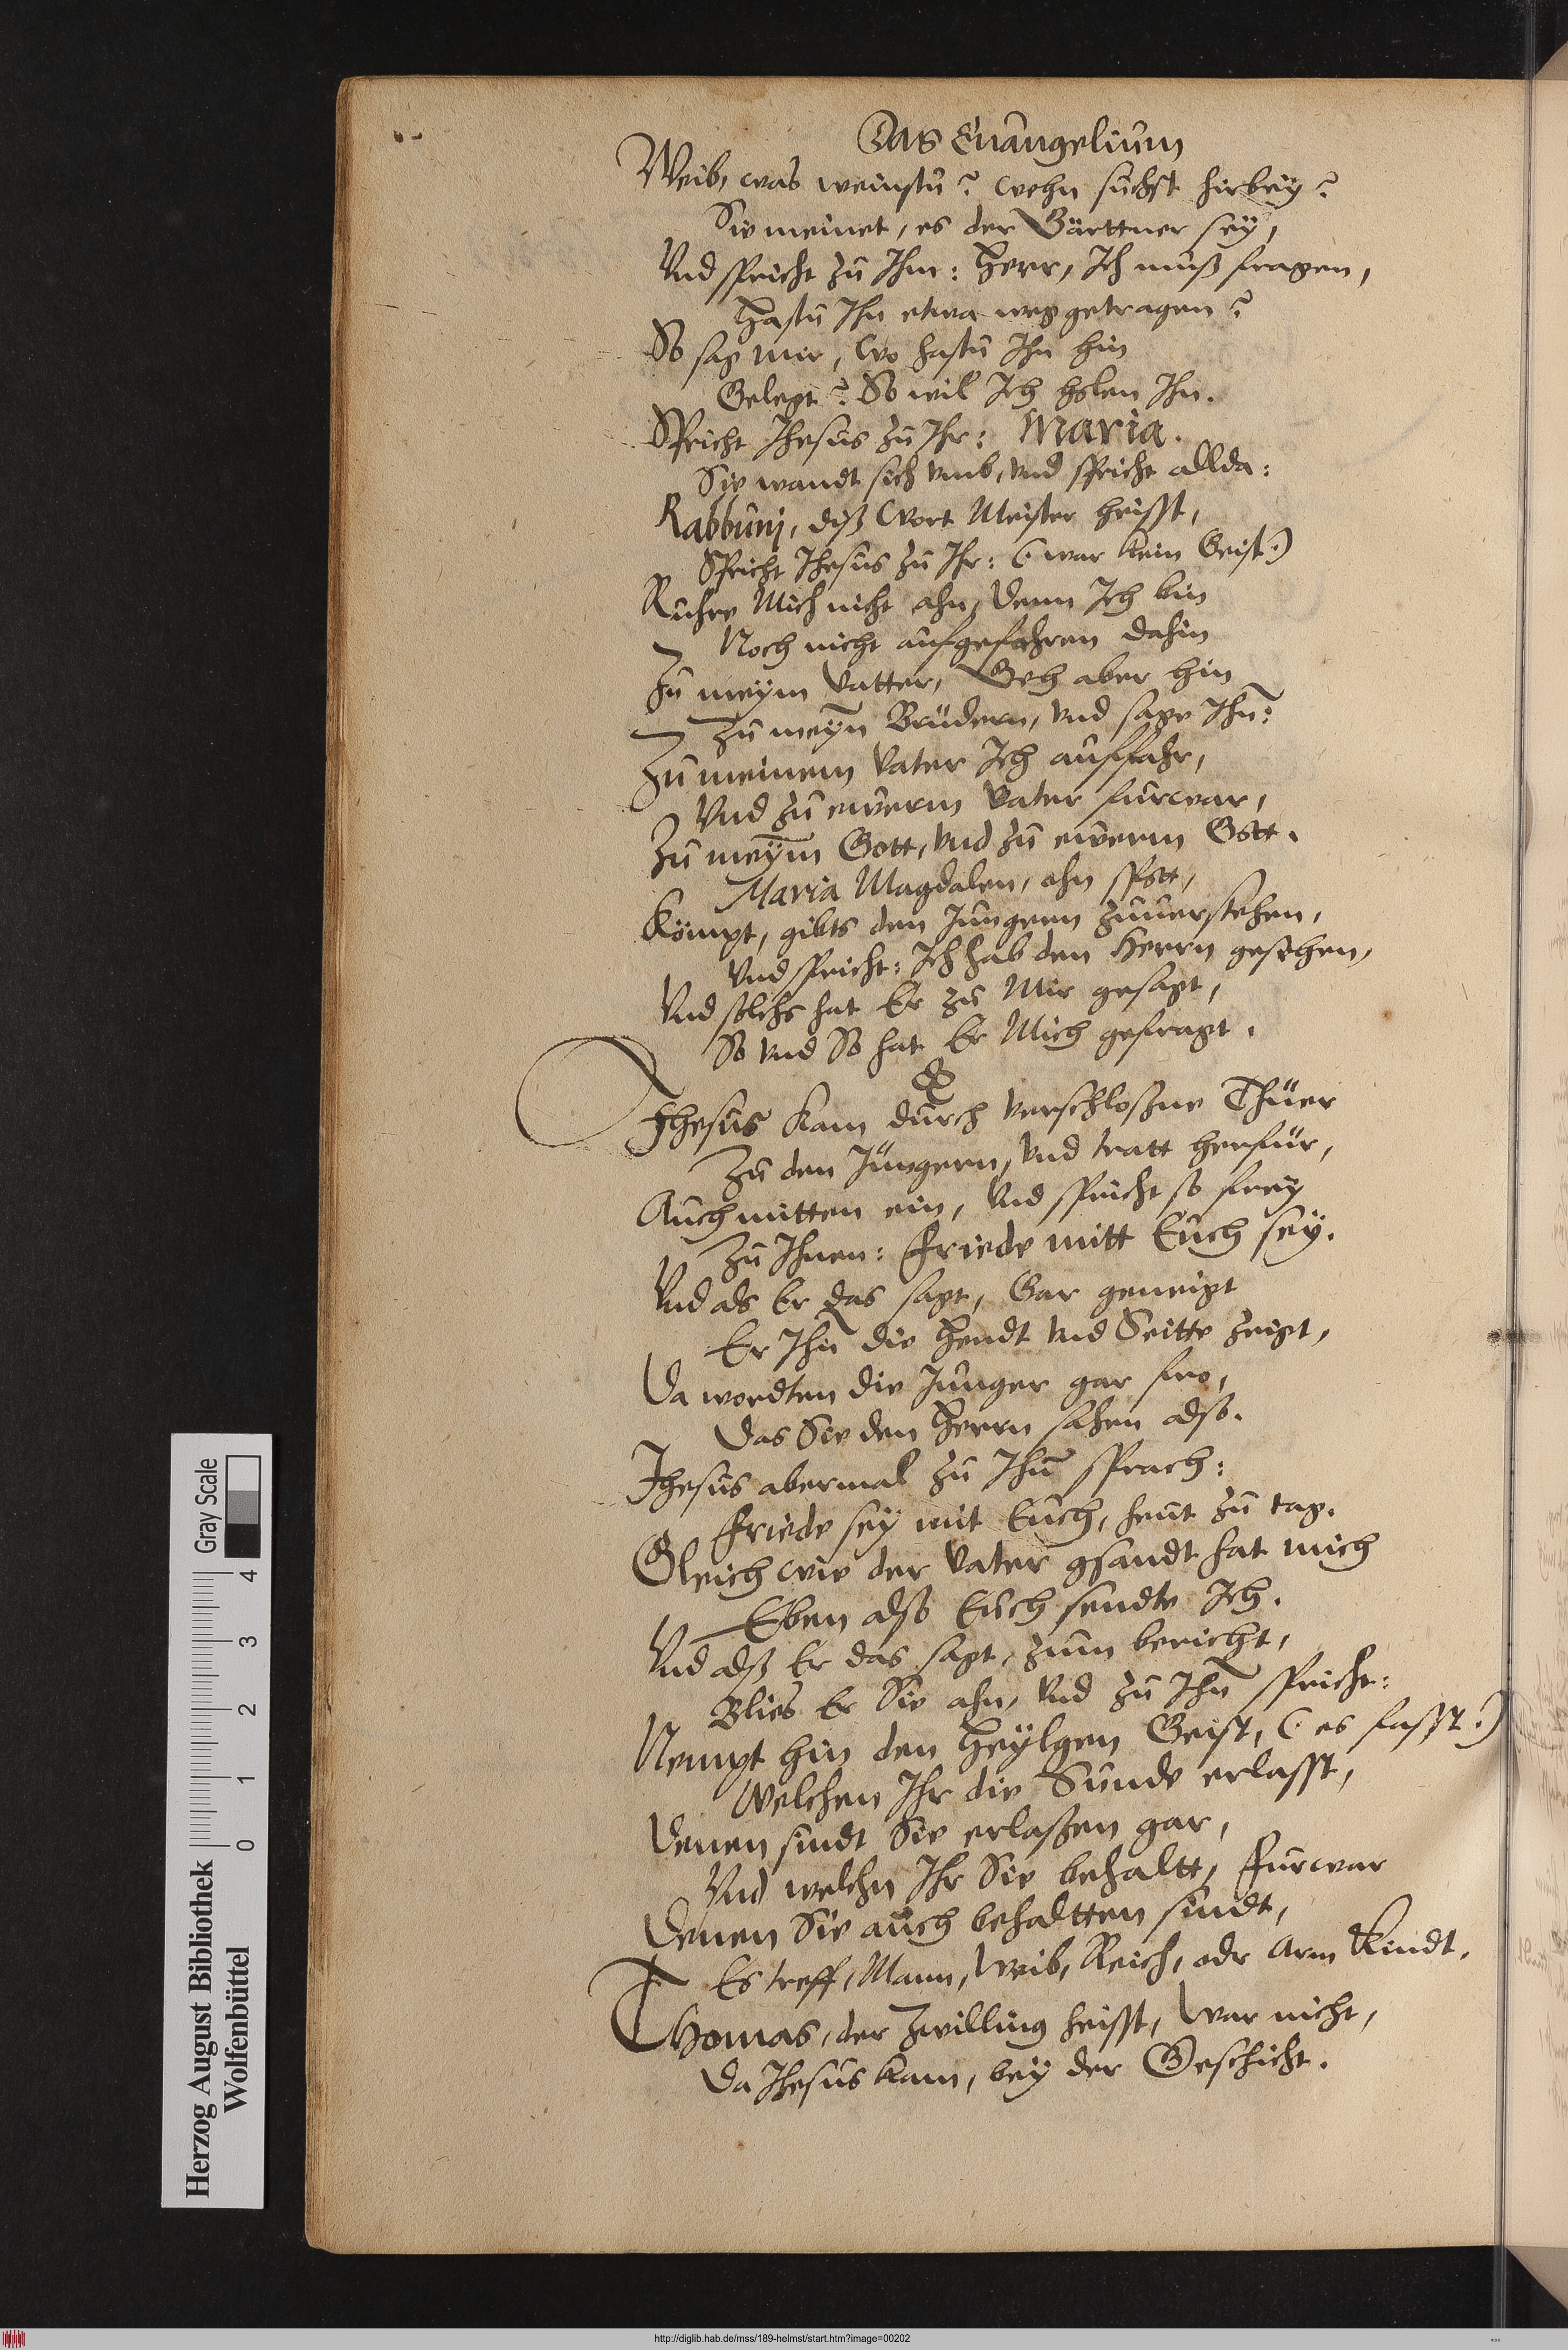 Das Euangelium
Weib, was weinstu? wehn suchst hirbey?
Sie meinet, es der Gärttner sey,
Vnd spricht zu Ihm: Herr, Ich muß fragen,
Hastu Ihn etwa weggetragen?
So sag mir, Wo hastu Ihn hin
Gelegt? So wil Ich holen Ihn.
Spricht Jhesus zu Ihr: Maria.
Sie wandt sich vmb, vnd spricht allda:
Rabbuni, diß Wort Meister heisst,
Spricht Jhesus zu Ihr: (: war kein Geist :)
Ruhre Mich nicht ahn, denn Ich bin
Noch nicht aufgefahren dahin
Zu meym Vatter, Geh aber hin
Zu meyn̄ Brüdern, vnd sage Ihn̄:
Zu meinem Vater Ich auffahr,
Vnd zu ewerm Vater furwar,
Zu meym̄ Gott, vnd zu ewerm Gott.
Maria Magdalen, ohn spott,
Kömpt, gibts den Jungern zuuerstehen,
Vnd spricht: Ich hab den Herrn gesehen,
Vnd solchs hat Er zu Mir gesagt,
So vnd So hat Er Mich gefragt.
Jhesus kam durch verschloßne Thüer
Zu den Jüngern, vnd tratt herfür,
Auch mitten ein, Vnd spricht so frey
Zu Ihnen: Friede mitt Euch sey.
Vnd als Er das sagt, Gar geneigt
Er Ihn̄ die Hendt vnd Seitte zeigt,
Da wordten die Junger gar fro,
Das Sie den Herrn sahen also.
Jhesus abermal zu Ihn̄ sprach:
Friede sey mit Euch, heut zu tag.
Gleich wie der Vater gsandt hat mich
Eben also Euch sendte Ich.
Vnd alß Er das sagt, zum bericht,
Blies Er Sie ahn, Vnd zu Ihn̄ spricht:
Nempt hin den Heylgen Geist, (: es fasst :)
Welchen Ihr die Sunde erlasst,
Denen sindt Sie erlaßen gar,
Vnd welchn Ihr Sie behaltt, furwar
Denen Sie auch behaltten sindt,
Es treff, Mann, Weib, Reich, odr Arm Kindt.
Thomas, der Zwilling heisst, War nicht,
Da Jhesus kam, bey der Geschicht.
Gray Scale
0 1 2 3 4
Herzog August Bibliothek
Wolfenbüttel
http://diglib.hab.de/mss/189-helmst/start.htm?image=00202